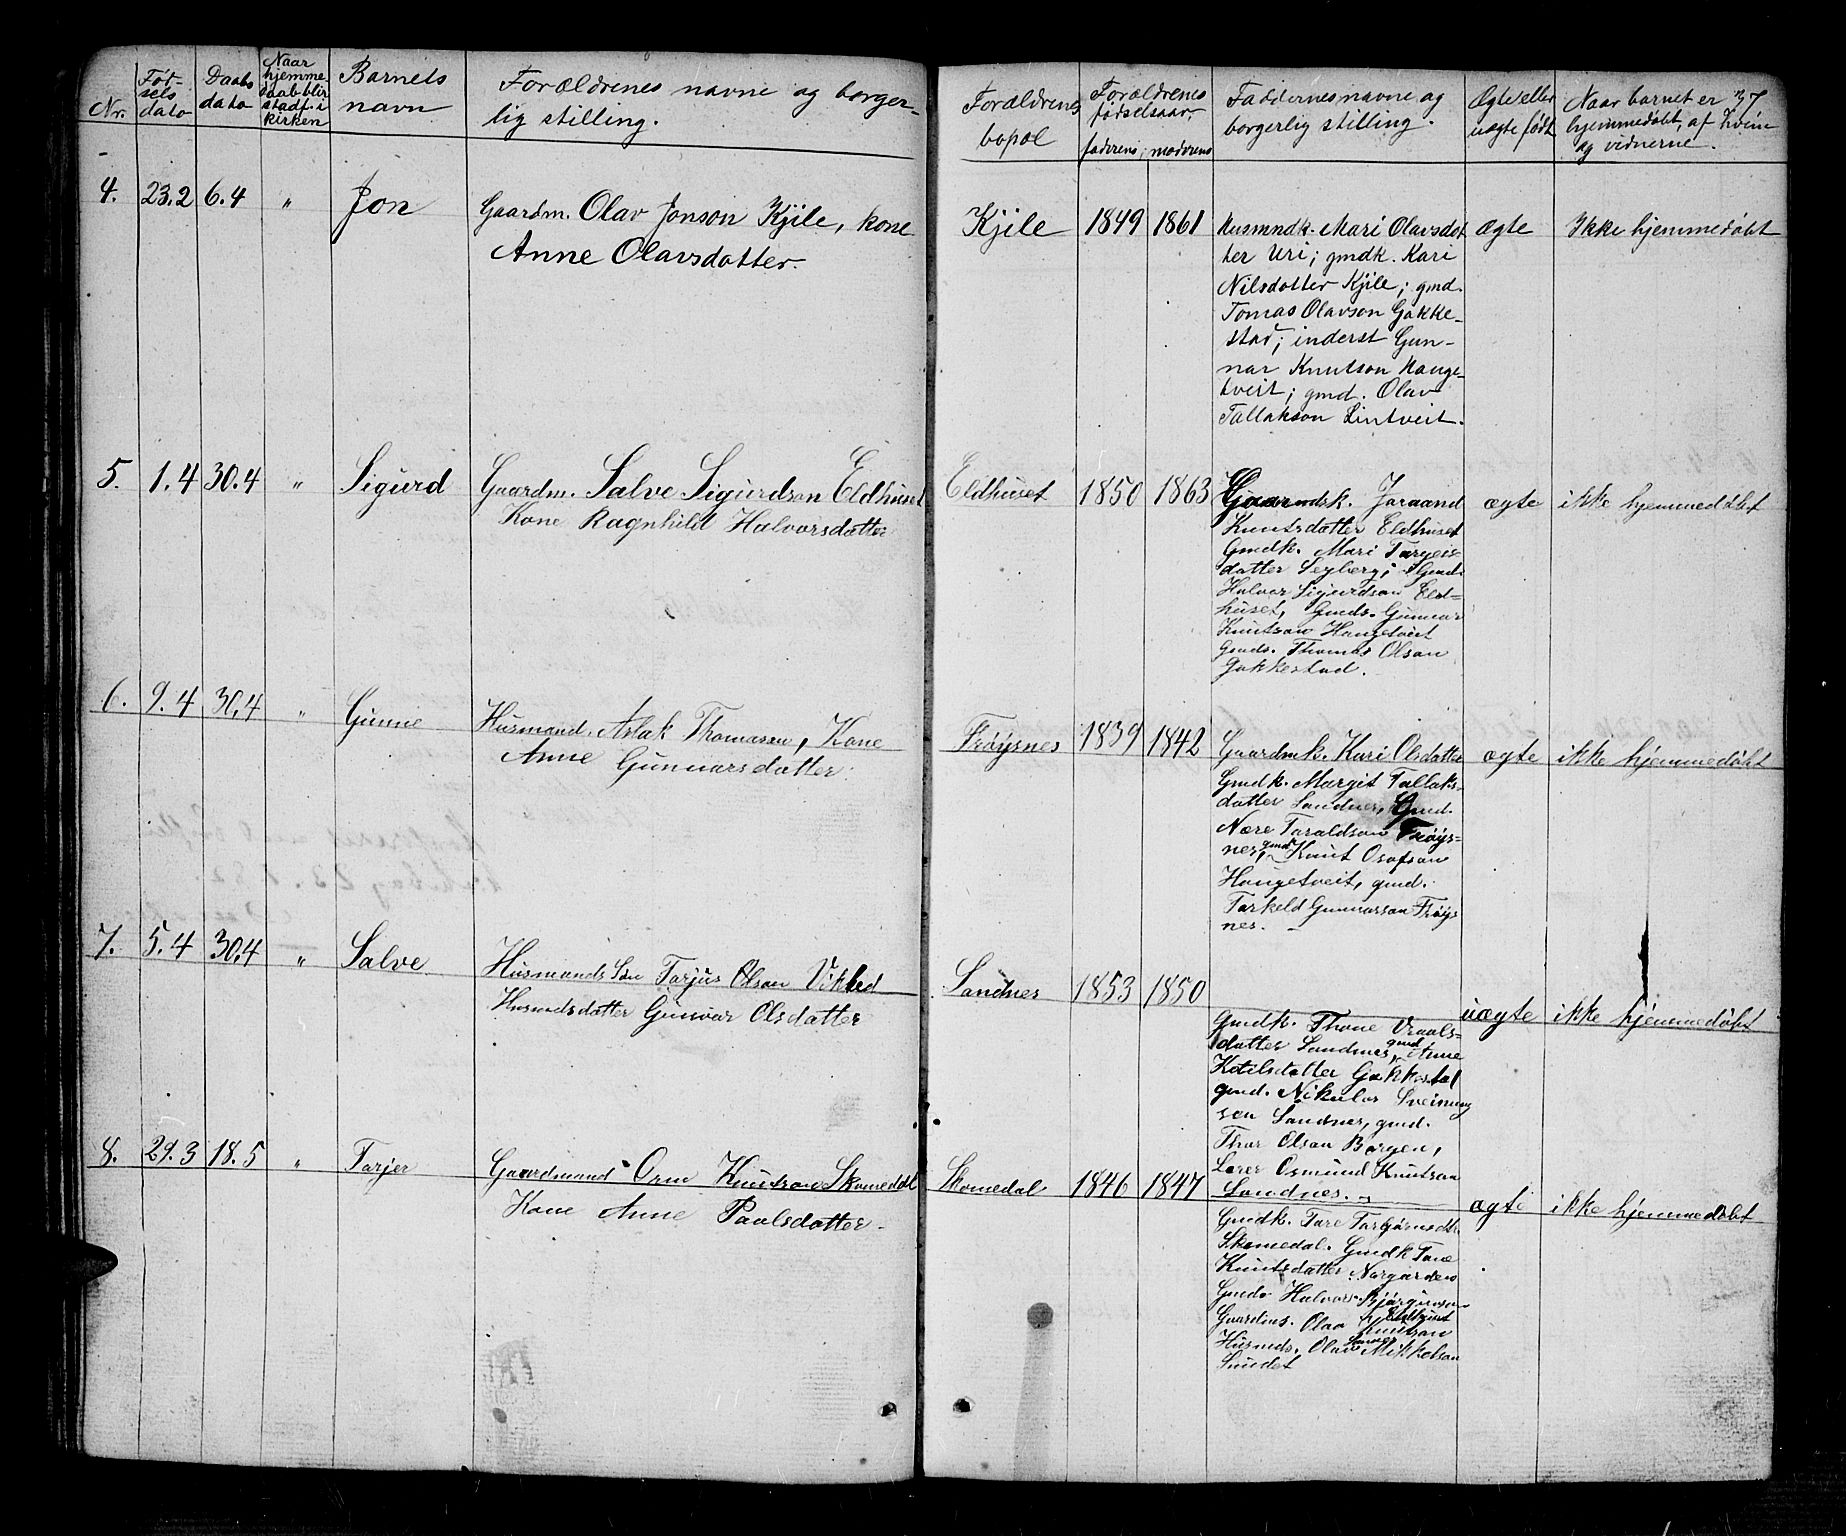 Nr.
Fød-
sels
dato
Daabs
dato
Naar
hjemme-
daab blir
stadf. i
kirken
Barnets
navn
Forældrenes navne og borger-
lig stilling.
Forældrenes
bopæl
Forældrenes
fødselsaar.
faderens; moderens
Faddernes navne og
borgerlig stilling.
Ægte eller
uægte født
Naar barnet er
hjemmedøbt, af hvem
og vidnerne.
4. 23.2 6.4 " Jon
Gaardm. Olav Jonson Kjile, kone
Anne Olavsdatter.
Kjile 1849 1861
Husmndk. Mari Olavsdat
ter Uri; gmdk. Kari
Nilsdatter Kjile; gmd.
Tomas Olavson Gakke-
stad; inderst Gun-
nar Knutson Hauge-
tveit; gmd. Olav
Tallakson Lintveit.
ægte Ikke hjemmedøbt
5. 1.4 30.4 " Sigurd
Gaardm. Salve Sigurdson Eldhuset
Kone Ragnhild Halvorsdatter
Eldhuset 1850 1863
Gaarmdsk. Joraand
Knutsdatter Eldhuset
Gmdk. Mari Targeis
datter Seyberg; Gmd.
Halvor Sigurdson Eld-
huset, Gmds. Gunnar
Knutson Haugetveit
Gmds. Thomas Olson
Gakkestad.
ægte ikke hjemmedøbt
6. 9.4 30.4 " Gunne
Husmand. Aslak Thomassen, Kone
Anne Gunnarsdatter.
Frøysnes 1839 1842
Gaardmk. Kari Olsdatter
Gmdk. Margit Tallaks-
datter Sandnes, Gmd.
Nære Taraldson Frøys-
nes, gmd. Knut Osofson
Haugetveit, gmd.
Tarkeld Gunnarson Frøys
nes.
ægte ikke hjemmedøbt
7. 5.4 30.4 " Salve
Husmands Søn Tarjus Olson
Husmdsdatter Gunvor Olsdatter
Sandnes 1853 1850
Gmdk. Thone Vraals-
datter Sandnes, gmd Anne
Ketilsdatter Gakkestad
gmd. Nikulas Sveinung
son Sandnes, gmd.
Thor Olson Borgen,
Lærer Osmund Knutson
Sandnes.
uægte ikke hjemmedøbt
8. 29.3 18.5 " Tarjer
Gaardmand Orm Knutson Skomedal
Kone Anne Paulsdatter.
Skomedal 1846 1847
Gmdk. Tore Targørnsdtr.
Skomedal. Gmdk Tone
Knutsdatter Norgarden
Gmds Halvor Bjørginson
Eldhuset
Gaardms. Olav Knutson
Husmds. Olav Mikkelson
ægte ikke hjemmedøbt